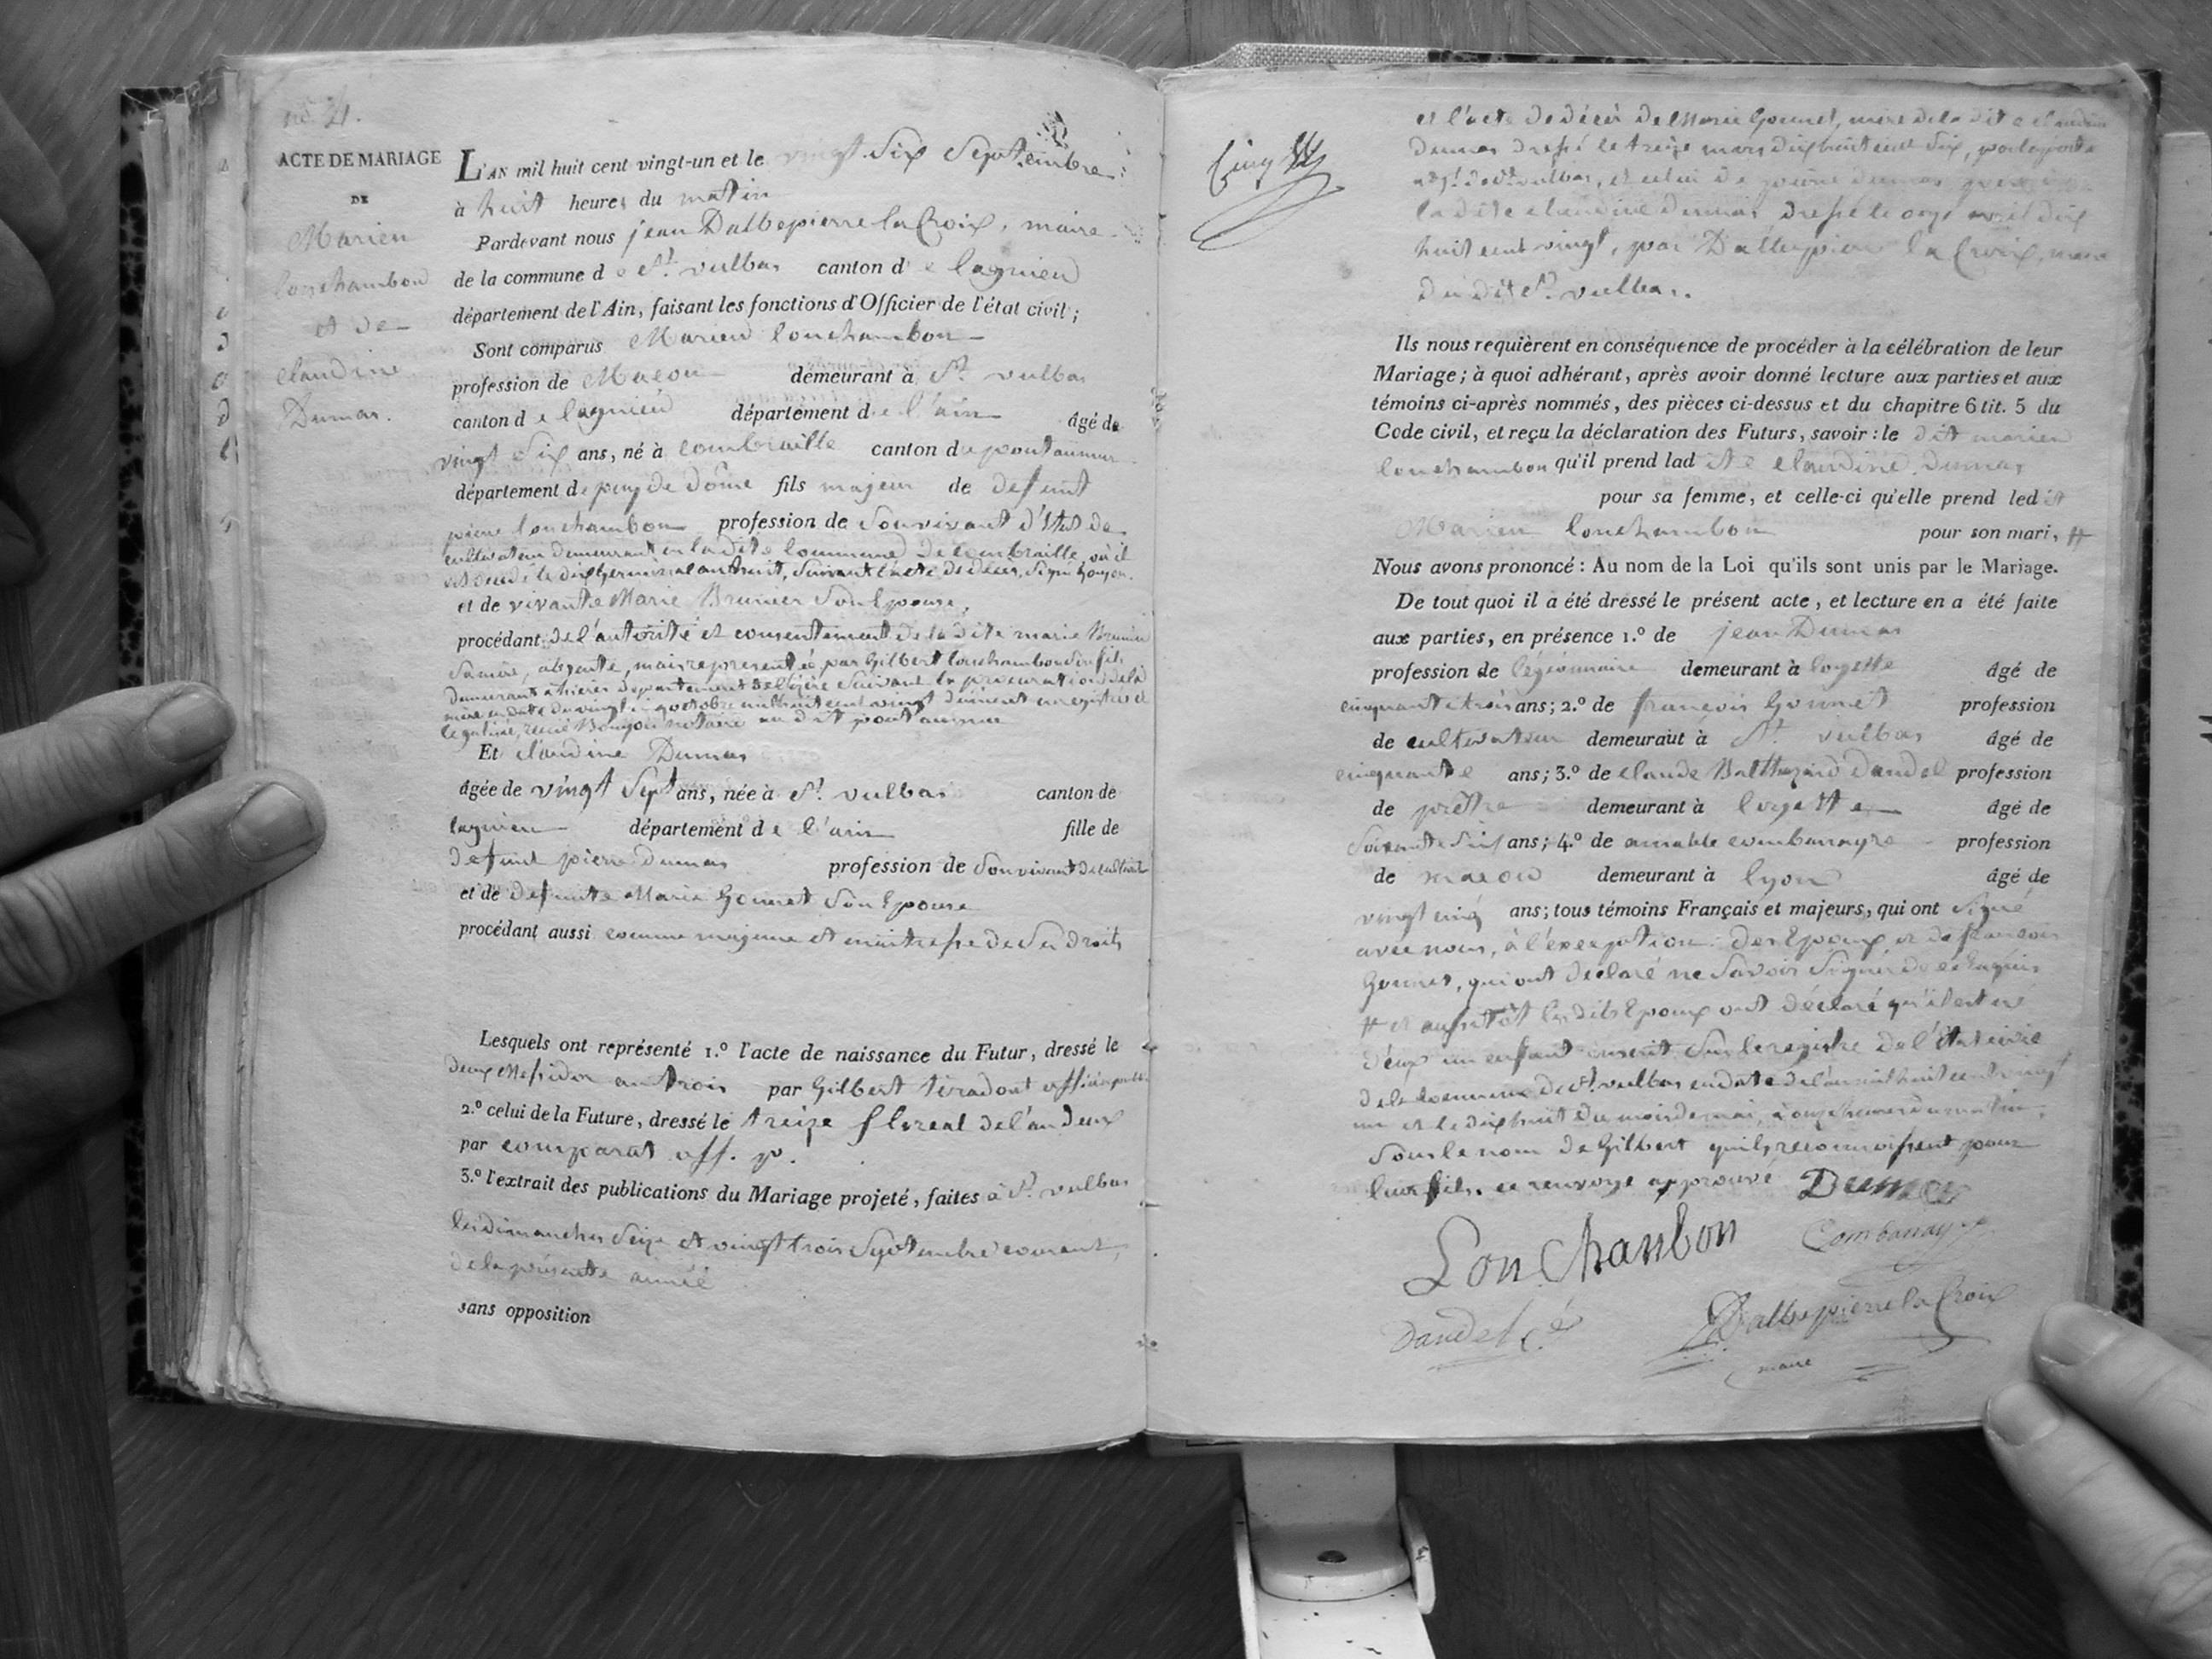 ACTE DE MARIAGE
DE
Marien
Lonchambon
et de
Claudine
Dumas.
L'AN mil huit cent vingt-un et le vingt six Septembre
à huit heures du matin
Pardevant nous jean Dalbepierre la Croix, maire
de la commune de St. vulbas canton de lagnieu
département de l'Ain, faisant les fonctions d'Officier de l'état civil ;
Sont comparus Marien Lonchambon
profession de Macon demeurant à St. vulbas
canton de lagnieu département de l'ain âgé de
vingt Six ans, né à combraille canton du pontaumur
département de puy de dôme fils majeur de defunt
pierre Lonchambon profession de Son vivant d'Etat de
cultivateur demeurant en la dite Commune de Combraille, où il
est decedé le dix Germinal an huit, Suivant l'acte de décès, Signé
et de vivante Marie Brunier Son Epouse,
procédant de l'autorité et consentement de la dite marie Brunier
Sa mère, absente, mais representée par Gilbert Lonchambon Son fils
demeurant à département de l'isère Suivant la procuration de la
mère en date du vingt octobre mil huit cent vingt duement enregistrée et
legalisée, notaire au dit pontaumur
Et Claudine Dumas
âgée de vingt Sept ans, née à St. vulbas canton de
lagnieu département de l'ain fille de
defunt pierre Dumas profession de Son vivant
et de defunte Marie Gonnet Son Epouse
procédant aussi comme majeure et maitresse de Ses droits
Lesquels ont représenté 1.º l'acte de naissance du Futur, dressé le
deux Messidor an trois par Gilbert teradont
2.º celui de la Future, dressé le treize floreal de l'an deux
par comparat off. p.
3.º l'extrait des publications du Mariage projeté, faites à St. vulbas
les dimanches Seize et vingt trois Septembre courant,
de la présente année
sans opposition
et l'acte de décès de Marie Gonnet, mère de la dite claudine
Dumas dressé le treize mars dix huit cent Six, par
de St. vulbas, et celui de pierre dumas
la dite claudine Dumas dressé le onze avril dix
huit cent vingt, par Dalbepierre la Croix, maire
du dit St. vulbas.
Ils nous requièrent en conséquence de procéder à la célébration de leur
Mariage ; à quoi adhérant, après avoir donné lecture aux parties et aux
témoins ci-après nommés, des pièces ci-dessus et du chapitre 6 tit. 5 du
Code civil, et reçu la déclaration des Futurs, savoir : le dit marien
Lonchambon qu'il prend ladite claudine dumas
pour sa femme, et celle-ci qu'elle prend ledit
Marien Lonchambon pour son mari, #
Nous avons prononcé : Au nom de la Loi qu'ils sont unis par le Mariage.
De tout quoi il a été dressé le présent acte, et lecture en a été faite
aux parties, en présence 1.º de jean Dumas
profession de légionnaire demeurant à loyette âgé de
cinquante trois ans ; 2.º de françois Gonnet profession
de cultivateur demeurant à St. vulbas âgé de
cinquante ans ; 3.º de claude Balthazard Dandel profession
de prêtre demeurant à loyette âgé de
Soixante Six ans ; 4.º de amable combanayre profession
de macon demeurant à lyon âgé de
vingt cinq ans ; tous témoins Français et majeurs, qui ont Signé
avec nous, à l'exception des Epoux et de françois
Gonnet, qui ont déclaré ne Savoir Signer de ce Enquis
# et aussitôt les dits Epoux ont déclaré qu'il est né
d'eux un enfant inscrit Sur le registre de l'état civil
de la commune de St. vulbas en date de l'an mil huit cent vingt
un et le dix huit du mois de mai, à onze heures du matin,
Sous le nom de Gilbert qu'ils reconnoissent pour
leur fils. ce renvoye approuvé Dumas
LonChanbon Combanayre
Dandel
Dalbepierre la Croix
maire